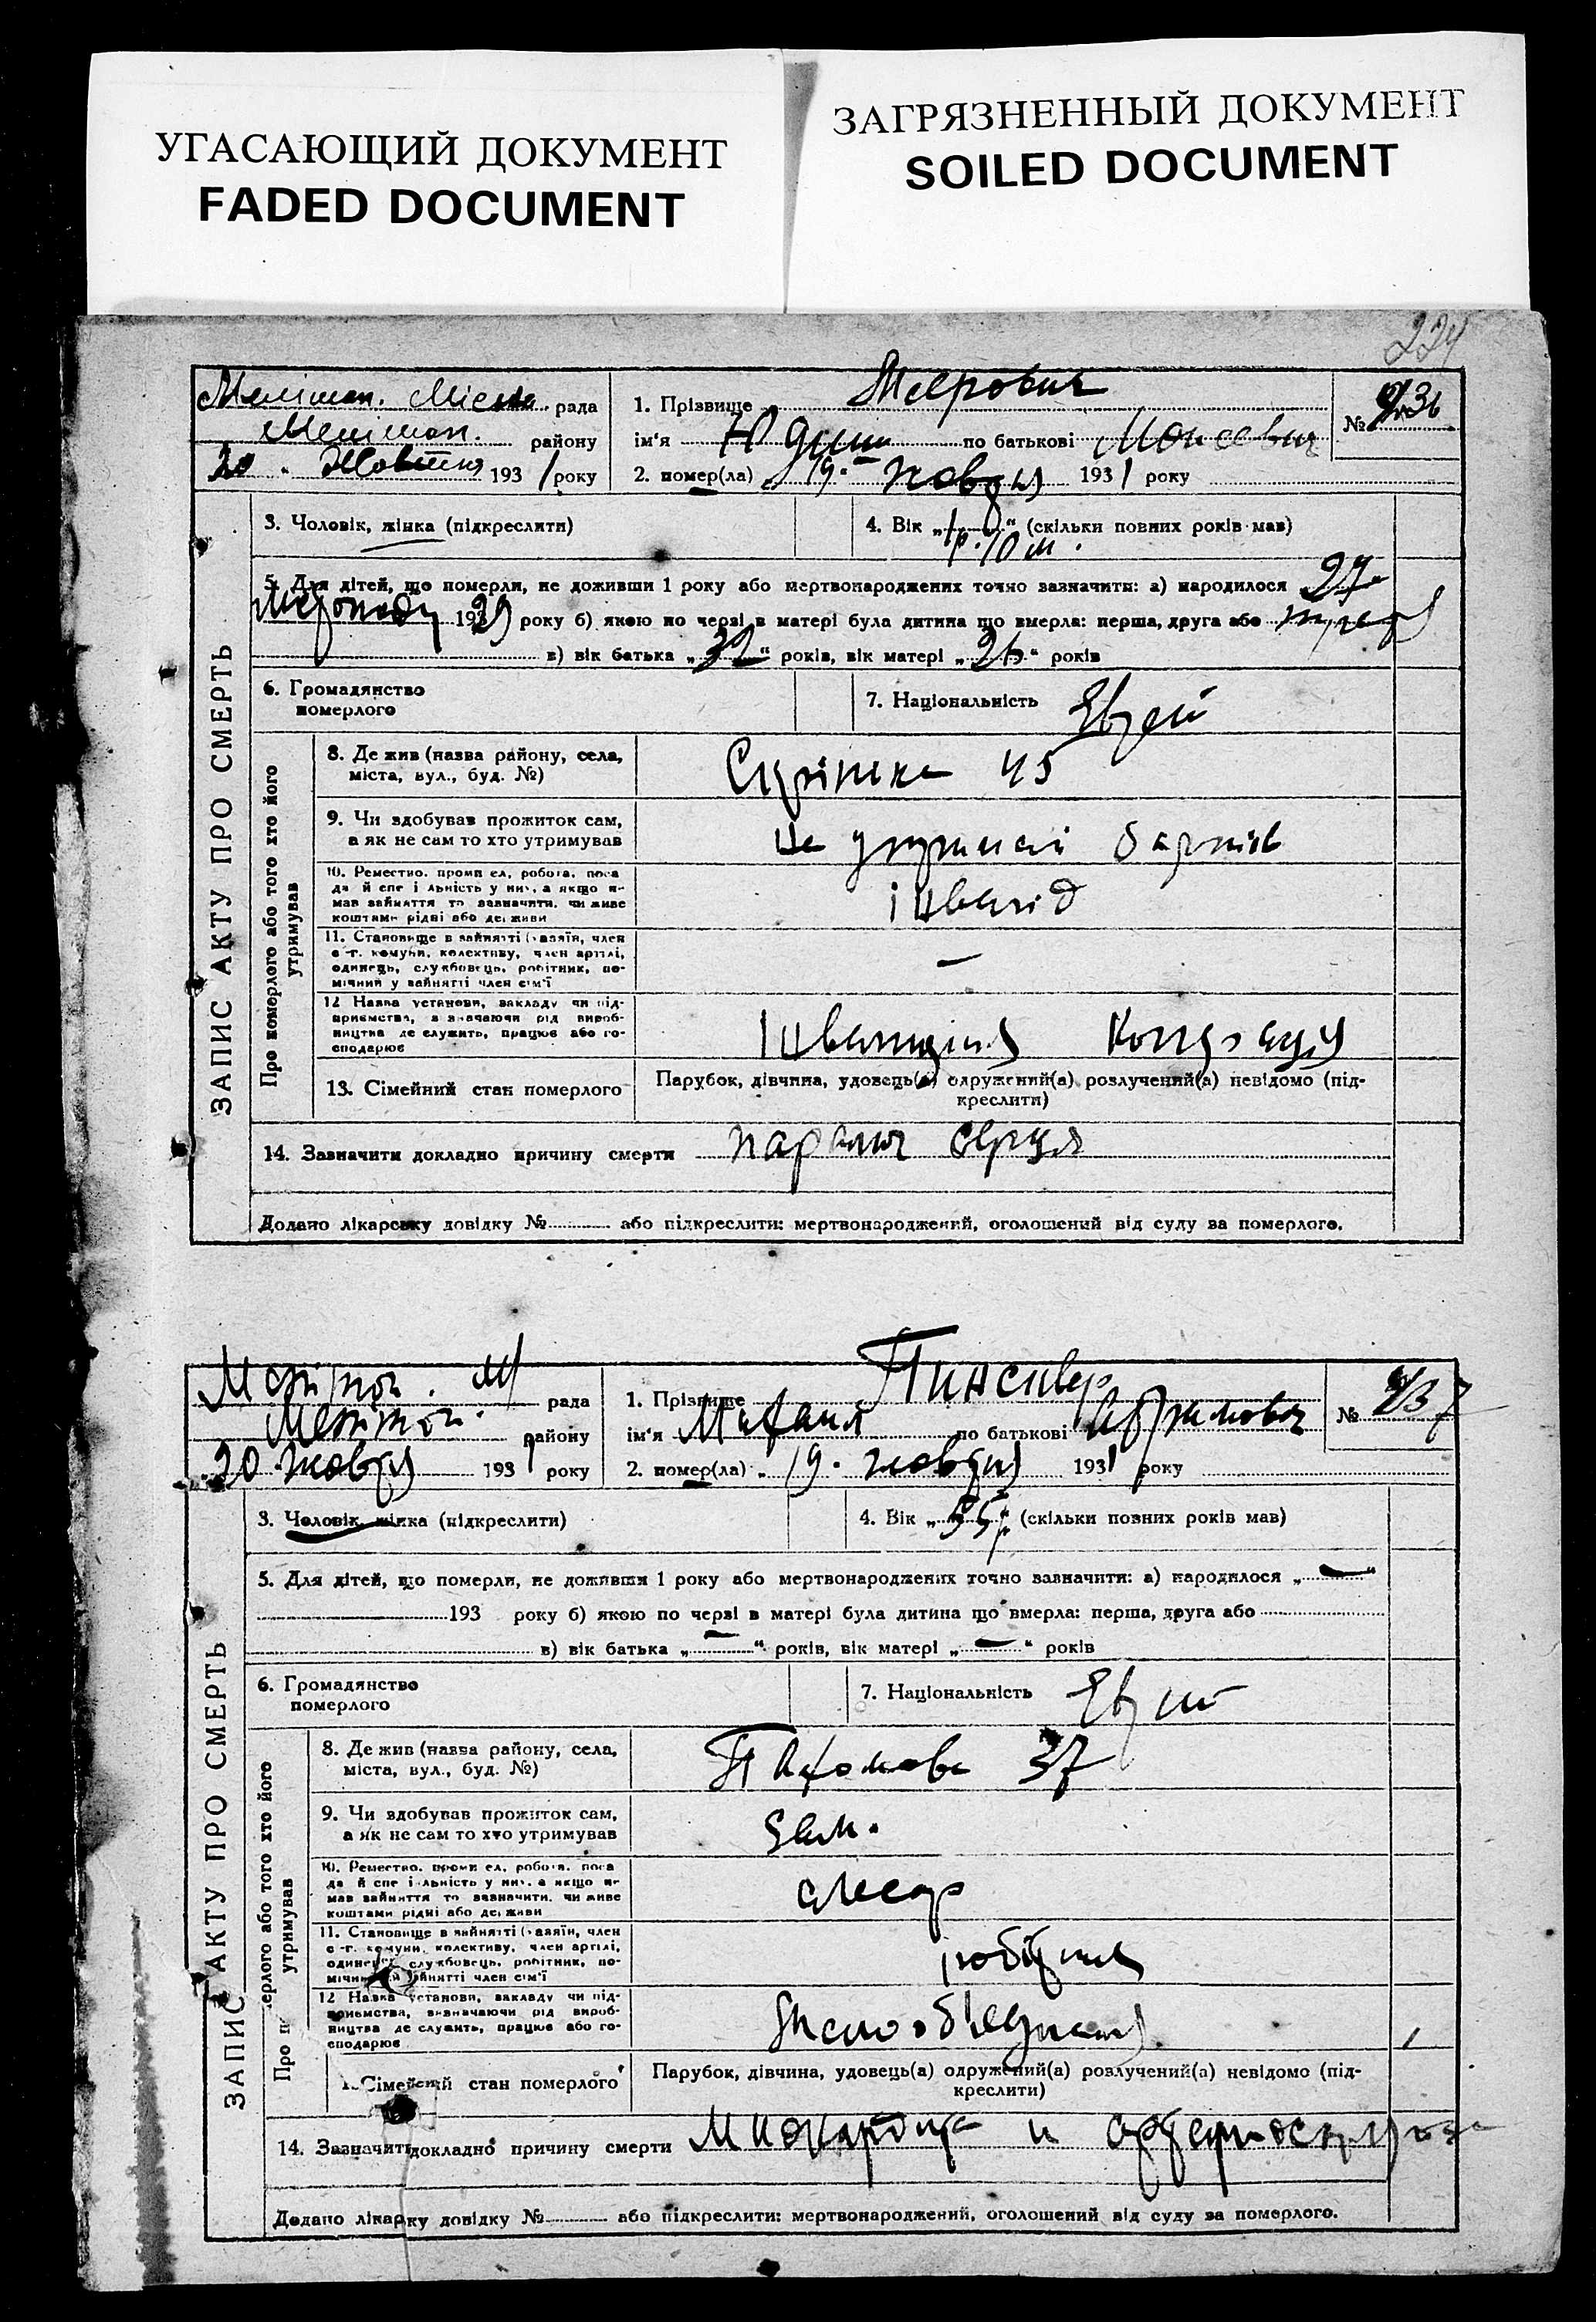 УГАСАЮЩИЙ ДОКУМЕНТ
FADED DOCUMENT
ЗАГРЯЗНЕННЫЙ ДОКУМЕНТ
SOILED DOCUMENT
224
Меліт рада
району
20 Жовтня 1931 року
1. Прізвище Меєрович
ім'я по батькові Моисеевич
№
2. помер(ла) 19. 1931 року
ЗАПИС АКТУ ПРО СМЕРТЬ
3. Чоловік, жінка (підкреслити)
4. Вік „ “ (скільки повних років мав)
1р. 10 м.
5. Для дітей, що померли, не доживши 1 року або мертвонароджених точно зазначити: а) народилося 27
1929 року б) якою по черзі в матері була дитина що вмерла: перша, друга або
в) вік батька „32“ років, вік матері „26“ років
6. Громадянство
померлого
7. Національність Еврей
Про померлого або того хто його
утримував
8. Де жив (назва району, села,
міста, вул., буд. №)
45
9. Чи здобував прожиток сам,
а як не сам то хто утримував
на утриманні батьків
10. Ремество, промисел, робота, поса
да й спеціальність у них, а якщо не
мав зайняття то зазначити, чи живе
коштами рідні або держави
інвалід
11. Становище в зайнятті (хазяїн, член
с.-г. комуни, колективу, член артілі,
одинець, службовець, робітник, по-
мічний у зайнятті член сім'ї
—
12 Назва установи, закладу чи під-
приємства, зазначаючи рід вироб-
ництва де служить, працює або го-
сподарює
13. Сімейний стан померлого
Парубок, дівчина, удовець(а) одружений(а) розлучений(а) невідомо (під-
креслити)
14. Зазначити докладно причину смерти параліч серця
Додано лікарську довідку № або підкреслити: мертвонароджений, оголошений від суду за померлого.
рада
району
20 жовтня 1931 року
1. Прізвище Пинсквер
ім'я Михаил по батькові Абрамович
№ 37
2. помер(ла) 19. жовтня 1931 року
ЗАПИС АКТУ ПРО СМЕРТЬ
3. Чоловік, жінка (підкреслити)
4. Вік „55р“ (скільки повних років мав)
5. Для дітей, що померли, не доживши 1 року або мертвонароджених точно зазначити: а) народилося „—“
193 року б) якою по черзі в матері була дитина що вмерла: перша, друга або
в) вік батька „—“ років, вік матері „—“ років
6. Громадянство
померлого
7. Національність Еврей
Про померлого або того хто його
утримував
8. Де жив (назва району, села,
міста, вул., буд. №)
Пахомова 37
9. Чи здобував прожиток сам,
а як не сам то хто утримував
10. Ремество, промисел, робота, поса
да й спеціальність у них, а якщо не
мав зайняття то зазначити, чи живе
коштами рідні або держави
слесар
11. Становище в зайнятті (хазяїн, член
с.-г. комуни, колективу, член артілі,
одинець, службовець, робітник, по-
мічний у зайнятті член сім'ї
робітник
12 Назва установи, закладу чи під-
приємства, зазначаючи рід вироб-
ництва де служить, працює або го-
сподарює
13. Сімейний стан померлого
Парубок, дівчина, удовець(а) одружений(а) розлучений(а) невідомо (під-
креслити)
14. Зазначити докладно причину смерти Миокардит и артериосклероз
Додано лікарську довідку № або підкреслити: мертвонароджений, оголошений від суду за померлого.